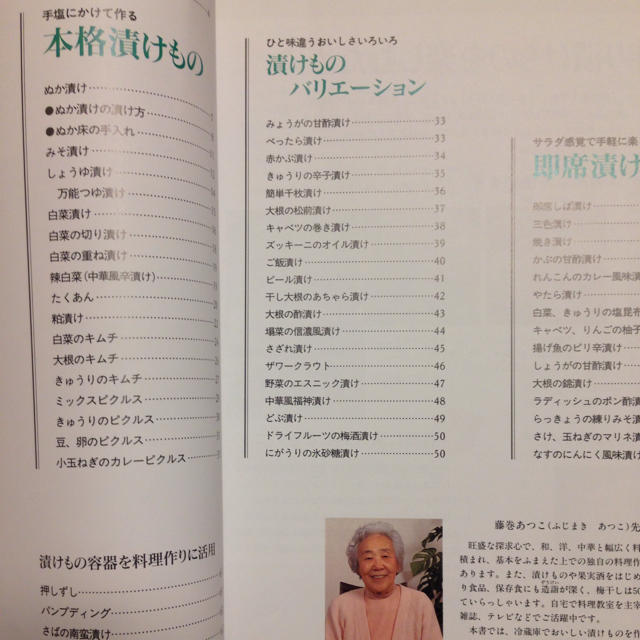 手塩にかけて作る
本格漬けもの
ぬか漬け
●ぬか漬けの漬け方
●ぬか床の手入れ
みそ漬け
しょうゆ漬け
万能つゆ漬け
白菜漬け
白菜の切り漬け
白菜の重ね漬け
辣白菜(中華風辛漬け)
たくあん
粕漬け
白菜のキムチ
大根のキムチ
きゅうりのキムチ
ミックスピクルス
きゅうりのピクルス
豆、卵のピクルス
小玉ねぎのカレーピクルス
漬けもの容器を料理作りに活用
押しずし
パンプディング
さばの南蛮漬け
ひと味違うおいしさいろいろ
漬けもの
バリエーション
みょうがの甘酢漬け 33
べったら漬け 33
赤かぶ漬け 34
きゅうりの辛子漬け 35
簡単千枚漬け 36
大根の松前漬け 37
キャベツの巻き漬け 38
ズッキーニのオイル漬け 39
ご飯漬け 40
ビール漬け 41
干し大根のあちゃら漬け 42
大根の酢漬け 43
塌菜の信濃風漬け 44
さざれ漬け 45
ザワークラウト 46
野菜のエスニック漬け 47
中華風福神漬け 48
どぶ漬け 49
ドライフルーツの梅酒漬け 50
にがうりの氷砂糖漬け 50
サラダ感覚で手軽に楽
即席漬け
即席しば漬け
三色漬け
焼き漬け
かぶの甘酢漬け
れんこんのカレー風味漬
やたら漬け
白菜、きゅうりの塩昆布
キャベツ、りんごの柚子
揚げ魚のピリ辛漬け
しょうがの甘酢漬け
大根の錦漬け
ラディッシュのポン酢漬
らっきょうの練りみそ漬
さけ、玉ねぎのマリネ漬
なすのにんにく風味漬け
藤巻あつこ(ふじまき あつこ)先
旺盛な探求心で、和、洋、中華と幅広く料
積まれ、基本をふまえた上での独自の料理作
あります。また、漬けものや果実酒をはじめ
り食品、保存食にも造詣が深く、梅干しは50
ていらっしゃいます。自宅で料理教室を主宰
雑誌、テレビなどでご活躍中です。
本書では、冷蔵庫でおいしい漬けものを作